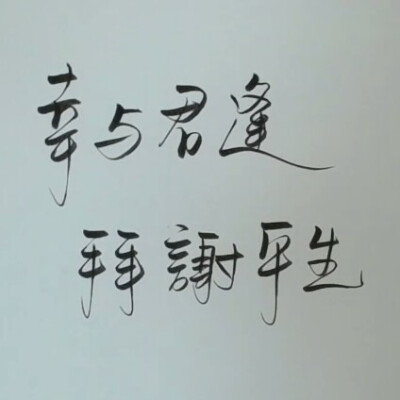 幸与君逢
拜謝平生